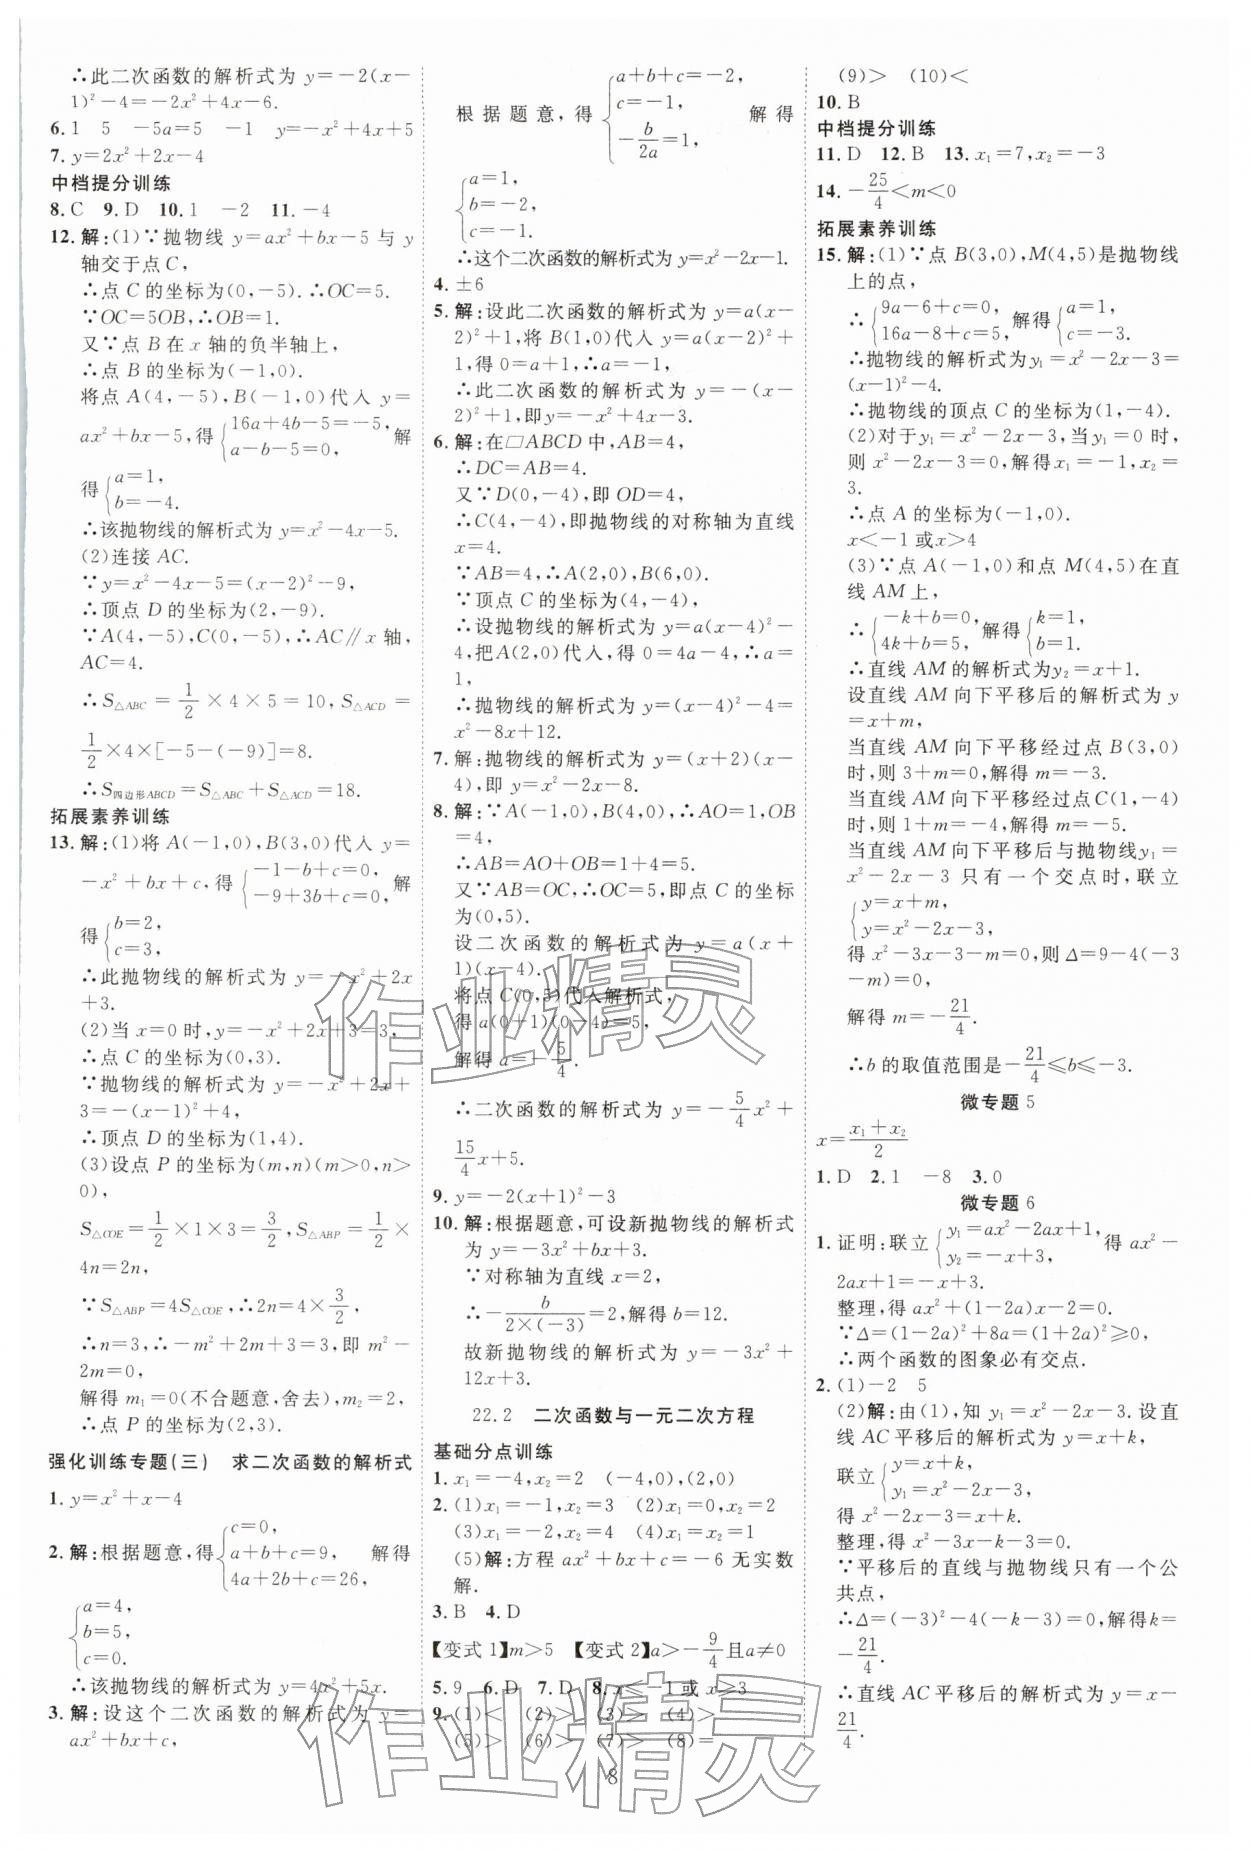 ∴此二次函数的解析式为 y=-2(x-
1)²-4=-2x²+4x-6.
6.1 5 -5a=5 -1 y=-x²+4x+5
7.y=2x²+2x-4
中档提分训练
8.C 9.D 10.1 -2 11.-4
12.解:(1)∵抛物线 y=ax²+bx-5 与 y
轴交于点 C,
∴点 C 的坐标为(0,-5).∴OC=5.
∵OC=5OB,∴OB=1.
又∵点 B 在 x 轴的负半轴上,
∴点 B 的坐标为(-1,0).
将点 A(4,-5),B(-1,0)代入 y=
ax²+bx-5,得{16a+4b-5=-5, a-b-5=0, 解
得{a=1, b=-4.
∴该抛物线的解析式为 y=x²-4x-5.
(2)连接 AC.
∵y=x²-4x-5=(x-2)²-9,
∴顶点 D 的坐标为(2,-9).
∵A(4,-5),C(0,-5),∴AC∥x 轴,
AC=4.
∴S△ABC=1/2×4×5=10,S△ACD=
1/2×4×[-5-(-9)]=8.
∴S四边形ABCD=S△ABC+S△ACD=18.
拓展素养训练
13.解:(1)将 A(-1,0),B(3,0)代入 y=
-x²+bx+c,得{-1-b+c=0, -9+3b+c=0, 解
得{b=2, c=3,
∴此抛物线的解析式为 y=-x²+2x
+3.
(2)当 x=0 时,y=-x²+2x+3=3,
∴点 C 的坐标为(0,3).
∵抛物线的解析式为 y=-x²+2x+
3=-(x-1)²+4,
∴顶点 D 的坐标为(1,4).
(3)设点 P 的坐标为(m,n)(m>0,n>
0),
S△COE=1/2×1×3=3/2,S△ABP=1/2×
4n=2n,
∵S△ABP=4S△COE,∴2n=4×3/2,
∴n=3,∴-m²+2m+3=3,即 m²-
2m=0,
解得 m₁=0(不合题意,舍去),m₂=2,
∴点 P 的坐标为(2,3).
强化训练专题(三) 求二次函数的解析式
1.y=x²+x-4
2.解:根据题意,得{c=0, a+b+c=9, 4a+2b+c=26, 解得
{a=4, b=5, c=0.
∴该抛物线的解析式为 y=4x²+5x.
3.解:设这个二次函数的解析式为 y=
ax²+bx+c,
根据题意,得{a+b+c=-2, c=-1, -b/2a=1, 解得
{a=1, b=-2, c=-1.
∴这个二次函数的解析式为 y=x²-2x-1.
4.±6
5.解:设此二次函数的解析式为 y=a(x-
2)²+1,将 B(1,0)代入 y=a(x-2)²+
1,得 0=a+1,∴a=-1,
∴此二次函数的解析式为 y=-(x-
2)²+1,即 y=-x²+4x-3.
6.解:在□ABCD 中,AB=4,
∴DC=AB=4.
又∵D(0,-4),即 OD=4,
∴C(4,-4),即抛物线的对称轴为直线
x=4.
∵AB=4,∴A(2,0),B(6,0).
∵顶点 C 的坐标为(4,-4),
∴设抛物线的解析式为 y=a(x-4)²-
4,把A(2,0)代入,得 0=4a-4,∴a=
1,
∴抛物线的解析式为 y=(x-4)²-4=
x²-8x+12.
7.解:抛物线的解析式为 y=(x+2)(x-
4),即 y=x²-2x-8.
8.解:∵A(-1,0),B(4,0),∴AO=1,OB
=4,
∴AB=AO+OB=1+4=5.
又∵AB=OC,∴OC=5,即点 C 的坐标
为(0,5).
设二次函数的解析式为 y=a(x+
1)(x-4).
将点 C(0,5)代入解析式,
得 a(0+1)(0-4)=5,
解得 a=-5/4.
∴二次函数的解析式为 y=-5/4x²+
15/4x+5.
9.y=-2(x+1)²-3
10.解:根据题意,可设新抛物线的解析式
为 y=-3x²+bx+3.
∵对称轴为直线 x=2,
∴-b/2×(-3)=2,解得 b=12.
故新抛物线的解析式为 y=-3x²+
12x+3.
22.2 二次函数与一元二次方程
基础分点训练
1.x₁=-4,x₂=2 (-4,0),(2,0)
2.(1)x₁=-1,x₂=3 (2)x₁=0,x₂=2
(3)x₁=-2,x₂=4 (4)x₁=x₂=1
(5)解:方程 ax²+bx+c=-6 无实数
解.
3.B 4.D
【变式 1】m>5 【变式 2】a>-9/4且a≠0
5.9 6.D 7.D 8.x≤-1 或 x>3
9.(1)< (2)> (3)> (4)>
(5)> (6)> (7)> (8)=
(9)> (10)<
10.B
中档提分训练
11.D 12.B 13.x₁=7,x₂=-3
14.-25/4<m<0
拓展素养训练
15.解:(1)∵点 B(3,0),M(4,5)是抛物线
上的点,
∴{9a-6+c=0, 16a-8+c=5, 解得{a=1, c=-3.
∴抛物线的解析式为y₁=x²-2x-3=
(x-1)²-4.
∴抛物线的顶点 C 的坐标为(1,-4).
(2)对于y₁=x²-2x-3,当y₁=0 时,
则 x²-2x-3=0,解得x₁=-1,x₂=
3.
∴点 A 的坐标为(-1,0).
x<-1 或x>4
(3)∵点 A(-1,0)和点 M(4,5)在直
线 AM 上,
∴{-k+b=0, 4k+b=5, 解得{k=1, b=1.
∴直线 AM 的解析式为y₂=x+1.
设直线 AM 向下平移后的解析式为 y
=x+m,
当直线 AM 向下平移经过点 B(3,0)
时,则 3+m=0,解得 m=-3.
当直线 AM 向下平移经过点C(1,-4)
时,则1+m=-4,解得 m=-5.
当直线 AM 向下平移后与抛物线y₁=
x²-2x-3 只有一个交点时,联立
{y=x+m, y=x²-2x-3,
得 x²-3x-3-m=0,则 Δ=9-4(-3
-m)=0,
解得 m=-21/4.
∴b 的取值范围是-21/4≤b≤-3.
微专题 5
x=x₁+x₂/2
1.D 2.1 -8 3.0
微专题 6
1.证明:联立{y₁=ax²-2ax+1, y₂=-x+3, 得 ax²-
2ax+1=-x+3.
整理,得 ax²+(1-2a)x-2=0.
∵Δ=(1-2a)²+8a=(1+2a)²≥0,
∴两个函数的图象必有交点.
2.(1)-2 5
(2)解:由(1),知 y₁=x²-2x-3.设直
线 AC 平移后的解析式为 y=x+k,
联立{y=x+k, y₁=x²-2x-3,
得 x²-2x-3=x+k.
整理,得 x²-3x-k-3=0.
∵平移后的直线与抛物线只有一个公
共点,
∴Δ=(-3)²-4(-k-3)=0,解得k=
-21/4.
∴直线 AC平移后的解析式为 y=x-
21/4.
8
作业精灵
作业精灵